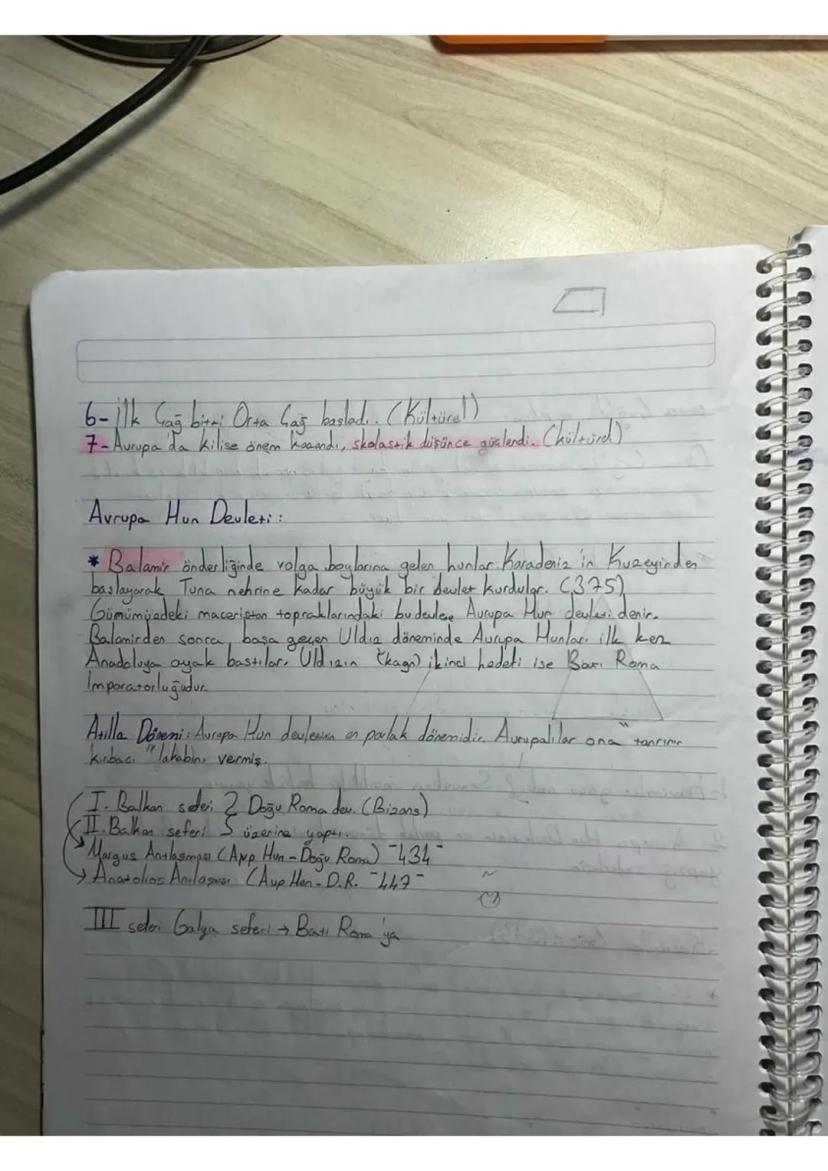 6- İlk Çağ bitti Orta Çağ başladı. (Kültürel)
7- Avrupa'da kilise önem kazandı, skolastik düşünce güçlendi. (kültürel)
Avrupa Hun Devleti:
* Balamir önderliğinde volga boylarına gelen hunlar Karadeniz'in Kuzeyinden
başlayarak Tuna nehrine kadar büyük bir devlet kurdular. (375)
Günümüzdeki macaristan topraklarındaki bu devlete Avrupa Hun devleti denir.
Balamirden sonra başa geçen Uldız döneminde Avrupa Hunları ilk kez
Anadoluya ayak bastılar. Uldızın ikinci hedefi ise Batı Roma
İmparatorluğudur.
Atilla Dönemi: Avrupa Hun devletinin en parlak dönemidir. Avrupalılar ona "tanrının
kırbacı" lakabını vermiş.
I. Balkan seferi } Doğu Roma dev. (Bizans)
II. Balkan seferi } üzerine yaptı.
Margus Antlaşması (Avp Hun - Doğu Roma) -434-
Anatolios Antlaşması (Avp Hun - D.R. -447-
III seferi Galya seferi → Batı Roma'ya